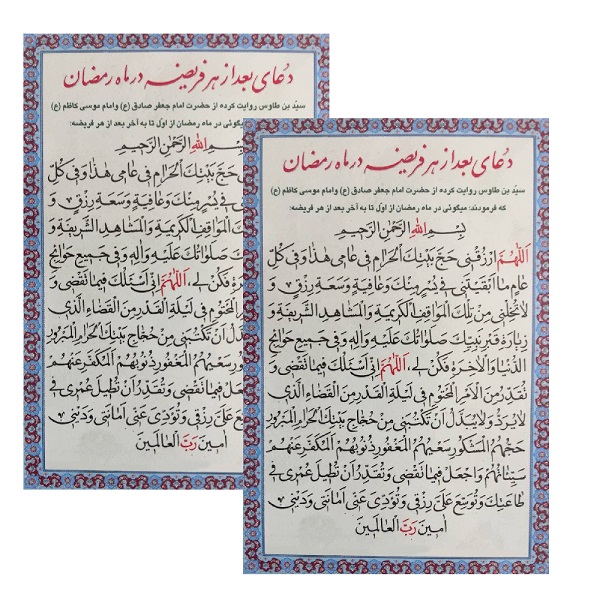 دعای بعد از هر فریضه در ماه رمضان
سیّد بن طاوس روایت کرده از حضرت امام جعفر صادق (ع) وامام موسی کاظم (ع)
میگوئی در ماه رمضان از اوّل تا به آخر بعد از هر فریضه:
بِسْمِ اللهِ الرَّحْمٰنِ الرَّحیمِ
حَجَّ بَیْتِكَ الْحَرامِ فی عامی هٰذا وَ فی کُلِّ
فی یُسْرٍ مِنْكَ وَ عافِیَةٍ وَ سَعَةِ رِزْقٍ وَ
تِلْكَ الْمَواقِفِ الْکَریمَةِ وَ الْمَشاهِدِ الشَّریفَةِ وَ
صَلَواتُكَ عَلَیْهِ وَ الِهِ وَ فی جَمیعِ حَوائِجِ
فَکُنْ لی، اَللّٰهُمَّ اِنّی اَسْئَلُكَ فیما تَقْضی وَ
الْمَحْتُومِ فی لَیْلَةِ الْقَدْرِ مِنَ الْقَضاءِ الَّذی
اَنْ تَکْتُبَنی مِنْ حُجّاجِ بَیْتِكَ الْحَرامِ الْمَبْرُورِ
سَعْیُهُمُ الْمَغْفُورِ ذُنُوبُهُمْ الْمُکَفَّرِ عَنْهُمْ
فیما تَقْضی وَ تُقَدِّرُ اَنْ تُطیلَ عُمْری فی
عَلَیَّ رِزْقی وَ تُؤَدِّیَ عَنّی اَمانَتی وَ دَیْنی
امینَ رَبَّ الْعالَمینَ
دعای بعد از هر فریضه در ماه رمضان
سیّد بن طاوس روایت کرده از حضرت امام جعفر صادق (ع) وامام موسی کاظم (ع)
که فرمودند: میگوئی در ماه رمضان از اوّل تا به آخر بعد از هر فریضه:
بِسْمِ اللهِ الرَّحْمٰنِ الرَّحیمِ
اَللّٰهُمَّ ارْزُقْنی حَجَّ بَیْتِكَ الْحَرامِ فی عامی هٰذا وَ فی کُلِّ
عامٍ ما اَبْقَیْتَنی فی یُسْرٍ مِنْكَ وَ عافِیَةٍ وَ سَعَةِ رِزْقٍ وَ
لا تُخْلِنی مِنْ تِلْكَ الْمَواقِفِ الْکَریمَةِ وَ الْمَشاهِدِ الشَّریفَةِ وَ
زِیارَةِ قَبْرِ نَبِیِّكَ صَلَواتُكَ عَلَیْهِ وَ الِهِ وَ فی جَمیعِ حَوائِجِ
الدُّنْیا وَ الْاخِرَةِ فَکُنْ لی، اَللّٰهُمَّ اِنّی اَسْئَلُكَ فیما تَقْضی وَ
تُقَدِّرُ مِنَ الْاَمْرِ الْمَحْتُومِ فی لَیْلَةِ الْقَدْرِ مِنَ الْقَضاءِ الَّذی
لا یُرَدُّ وَ لا یُبَدَّلُ اَنْ تَکْتُبَنی مِنْ حُجّاجِ بَیْتِكَ الْحَرامِ الْمَبْرُورِ
حَجُّهُمُ الْمَشْکُورِ سَعْیُهُمُ الْمَغْفُورِ ذُنُوبُهُمْ الْمُکَفَّرِ عَنْهُمْ
سَیِّئاتُهُمْ وَ اجْعَلْ فیما تَقْضی وَ تُقَدِّرُ اَنْ تُطیلَ عُمْری فی
طاعَتِكَ وَ تُوَسِّعَ عَلَیَّ رِزْقی وَ تُؤَدِّیَ عَنّی اَمانَتی وَ دَیْنی
امینَ رَبَّ الْعالَمینَ